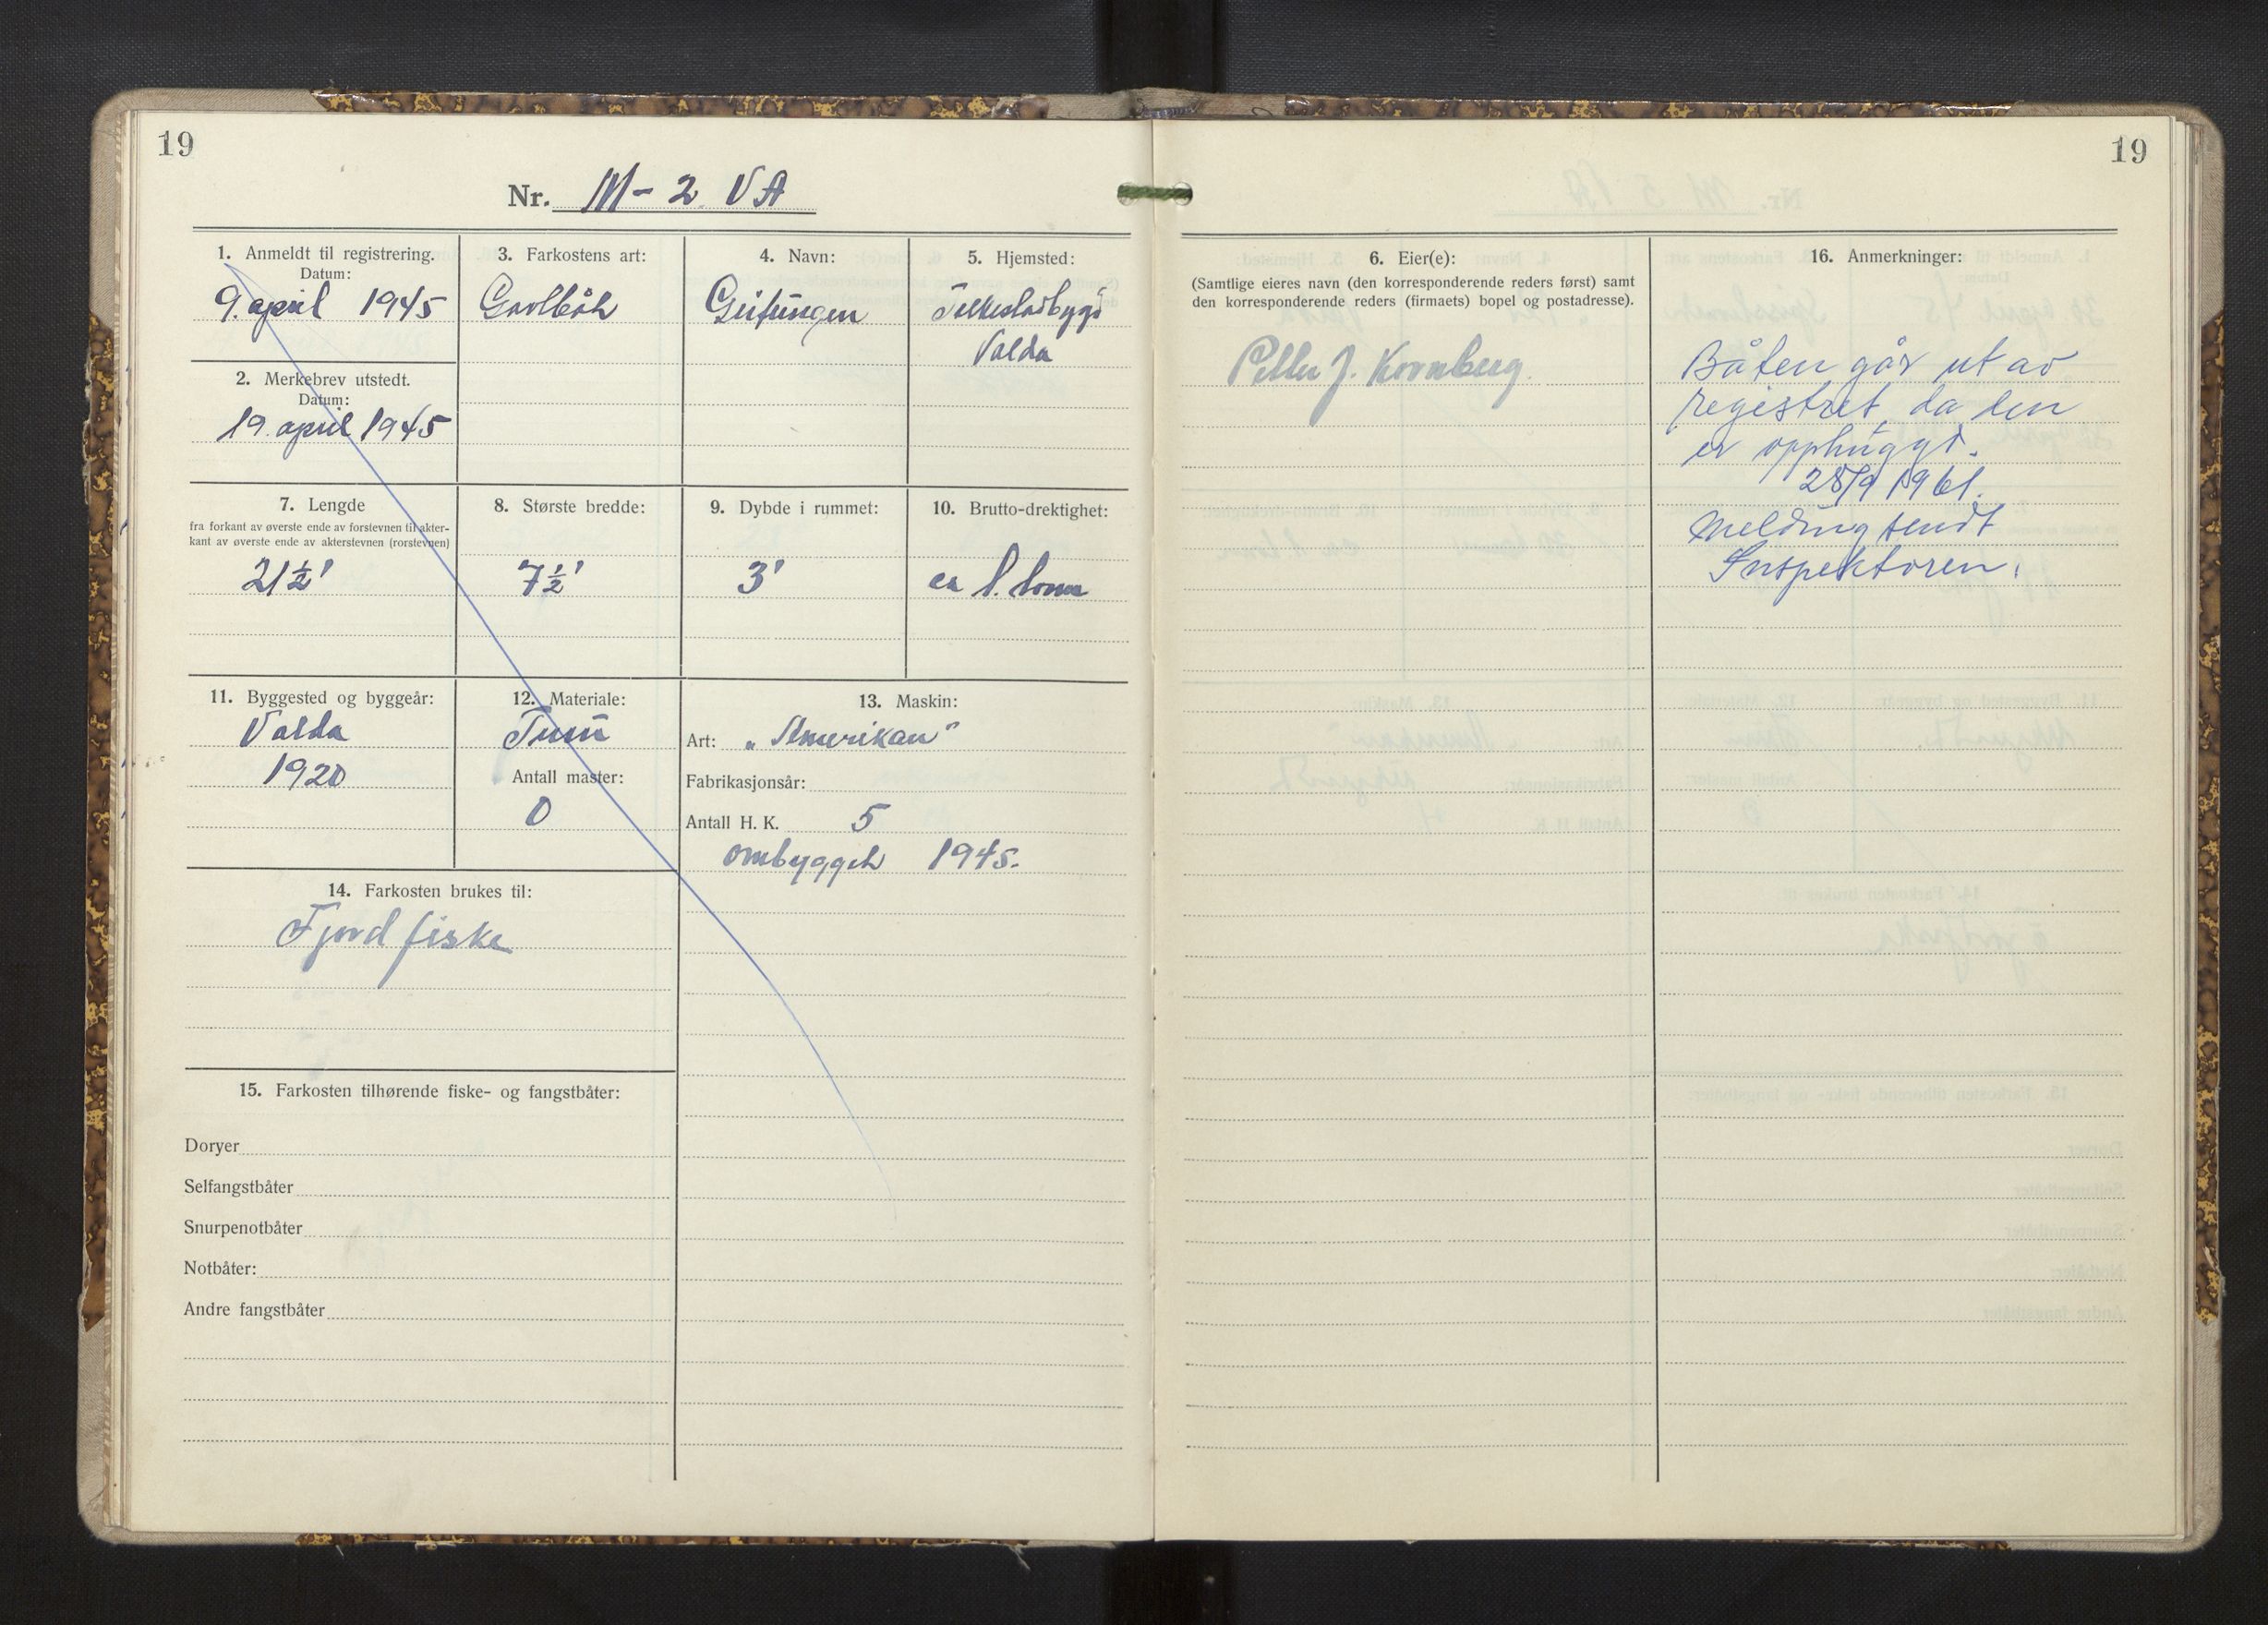 19
19
Nr. M-2 VA
1. Anmeldt til registrering.
Datum:
9. april 1945
2. Merkebrev utstedt.
Datum:
19. april 1945
3. Farkostens art:
Gavlbåt
4. Navn:
Geitungen
5. Hjemsted:
Folkestadbygd
Volda
7. Lengde
fra forkant av øverste ende av forstevnen til akter-
kant av øverste ende av akterstevnen (rorstevnen)
21½'
8. Største bredde:
7½'
9. Dybde i rummet:
3'
10. Brutto-drektighet:
ca 1. tonn
11. Byggested og byggeår:
Volda
1920
12. Materiale:
Furu
Antall master:
0
13. Maskin:
Art: „Amerikan"
Fabrikasjonsår:
Antall H. K. 5
ombygget 1945.
14. Farkosten brukes til:
Fjordfiske
15. Farkosten tilhørende fiske- og fangstbåter:
Doryer
Selfangstbåter
Snurpenotbåter
Notbåter:
Andre fangstbåter
6. Eier(e):
(Samtlige eieres navn (den korresponderende reders først) samt
den korresponderende reders (firmaets) bopel og postadresse).
Petter J. Kornberg.
16. Anmerkninger:
Båten går ut av
registret, da den
er opphuggd.
28/9 1961.
Melding sendt
Inspektoren.